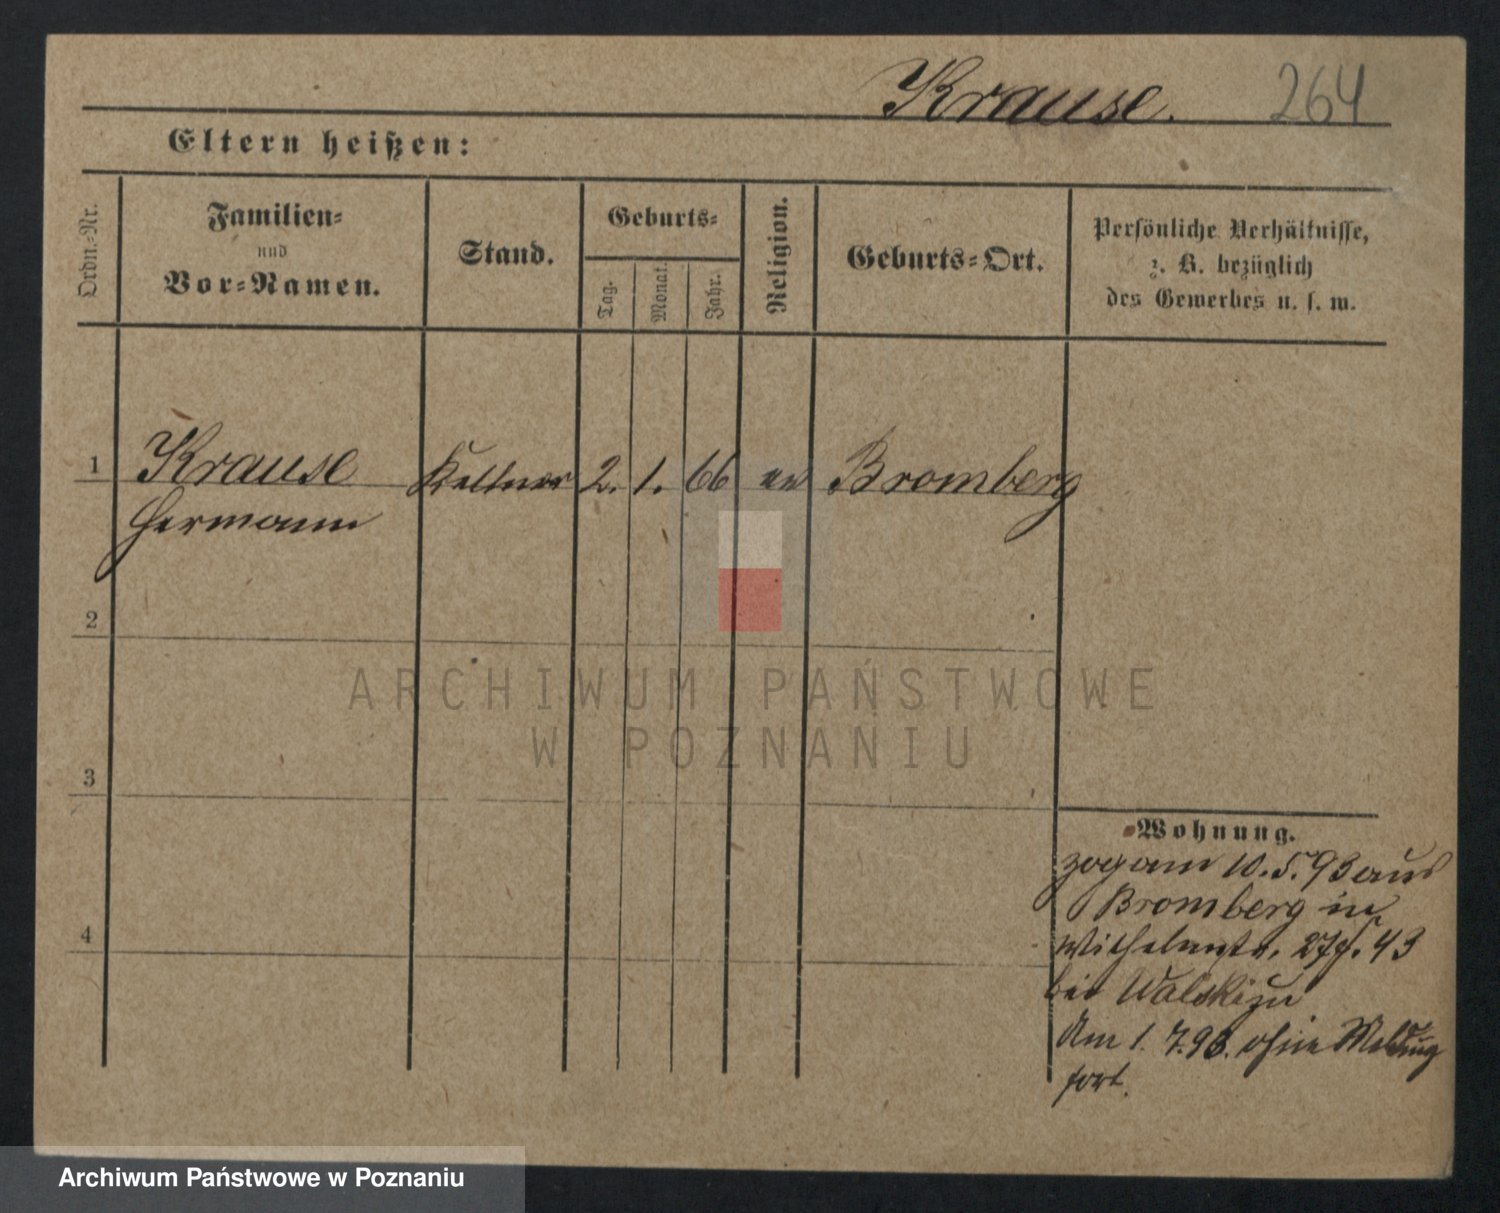 Krause. 264
Eltern heißen:
Ordn.-Nr.
Familien-
und
Vor-Namen.
Stand.
Geburts-
Tag.
Monat.
Jahr.
Religion.
Geburts-Ort.
Persönliche Verhältnisse,
z. B. bezüglich
des Gewerbes u. s. w.
1 Krause Kellner 2. 1. 66 ev Bromberg
Hermann
2
3
4
Wohnung.
zog am 10.5.93 aus
Bromberg in
Wilhelmstr. 43
bei
Am 1. 7.93. ohne Meldung
fort.
ARCHIWUM PAŃSTWOWE
W POZNANIU
Archiwum Państwowe w Poznaniu